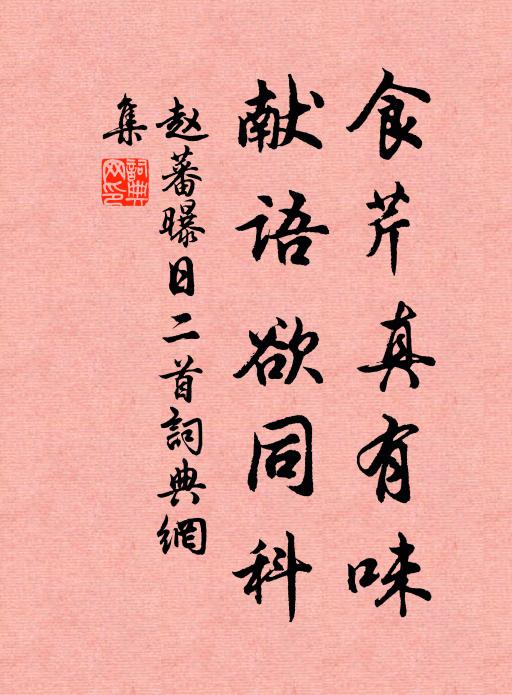 食芹真有味
献语欲同科
赵蕃曝日二首詞典網
集
詞典網印